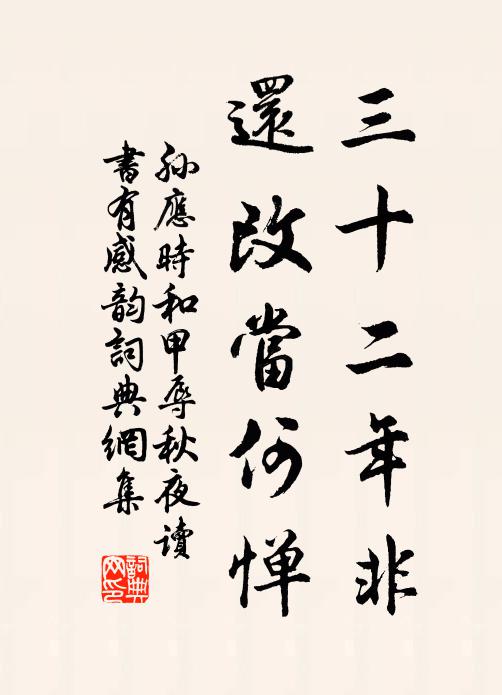 三十二年非
還改當何惮
孙應時和甲辱秋夜讀
書有感韵詞典網集
詞典网印